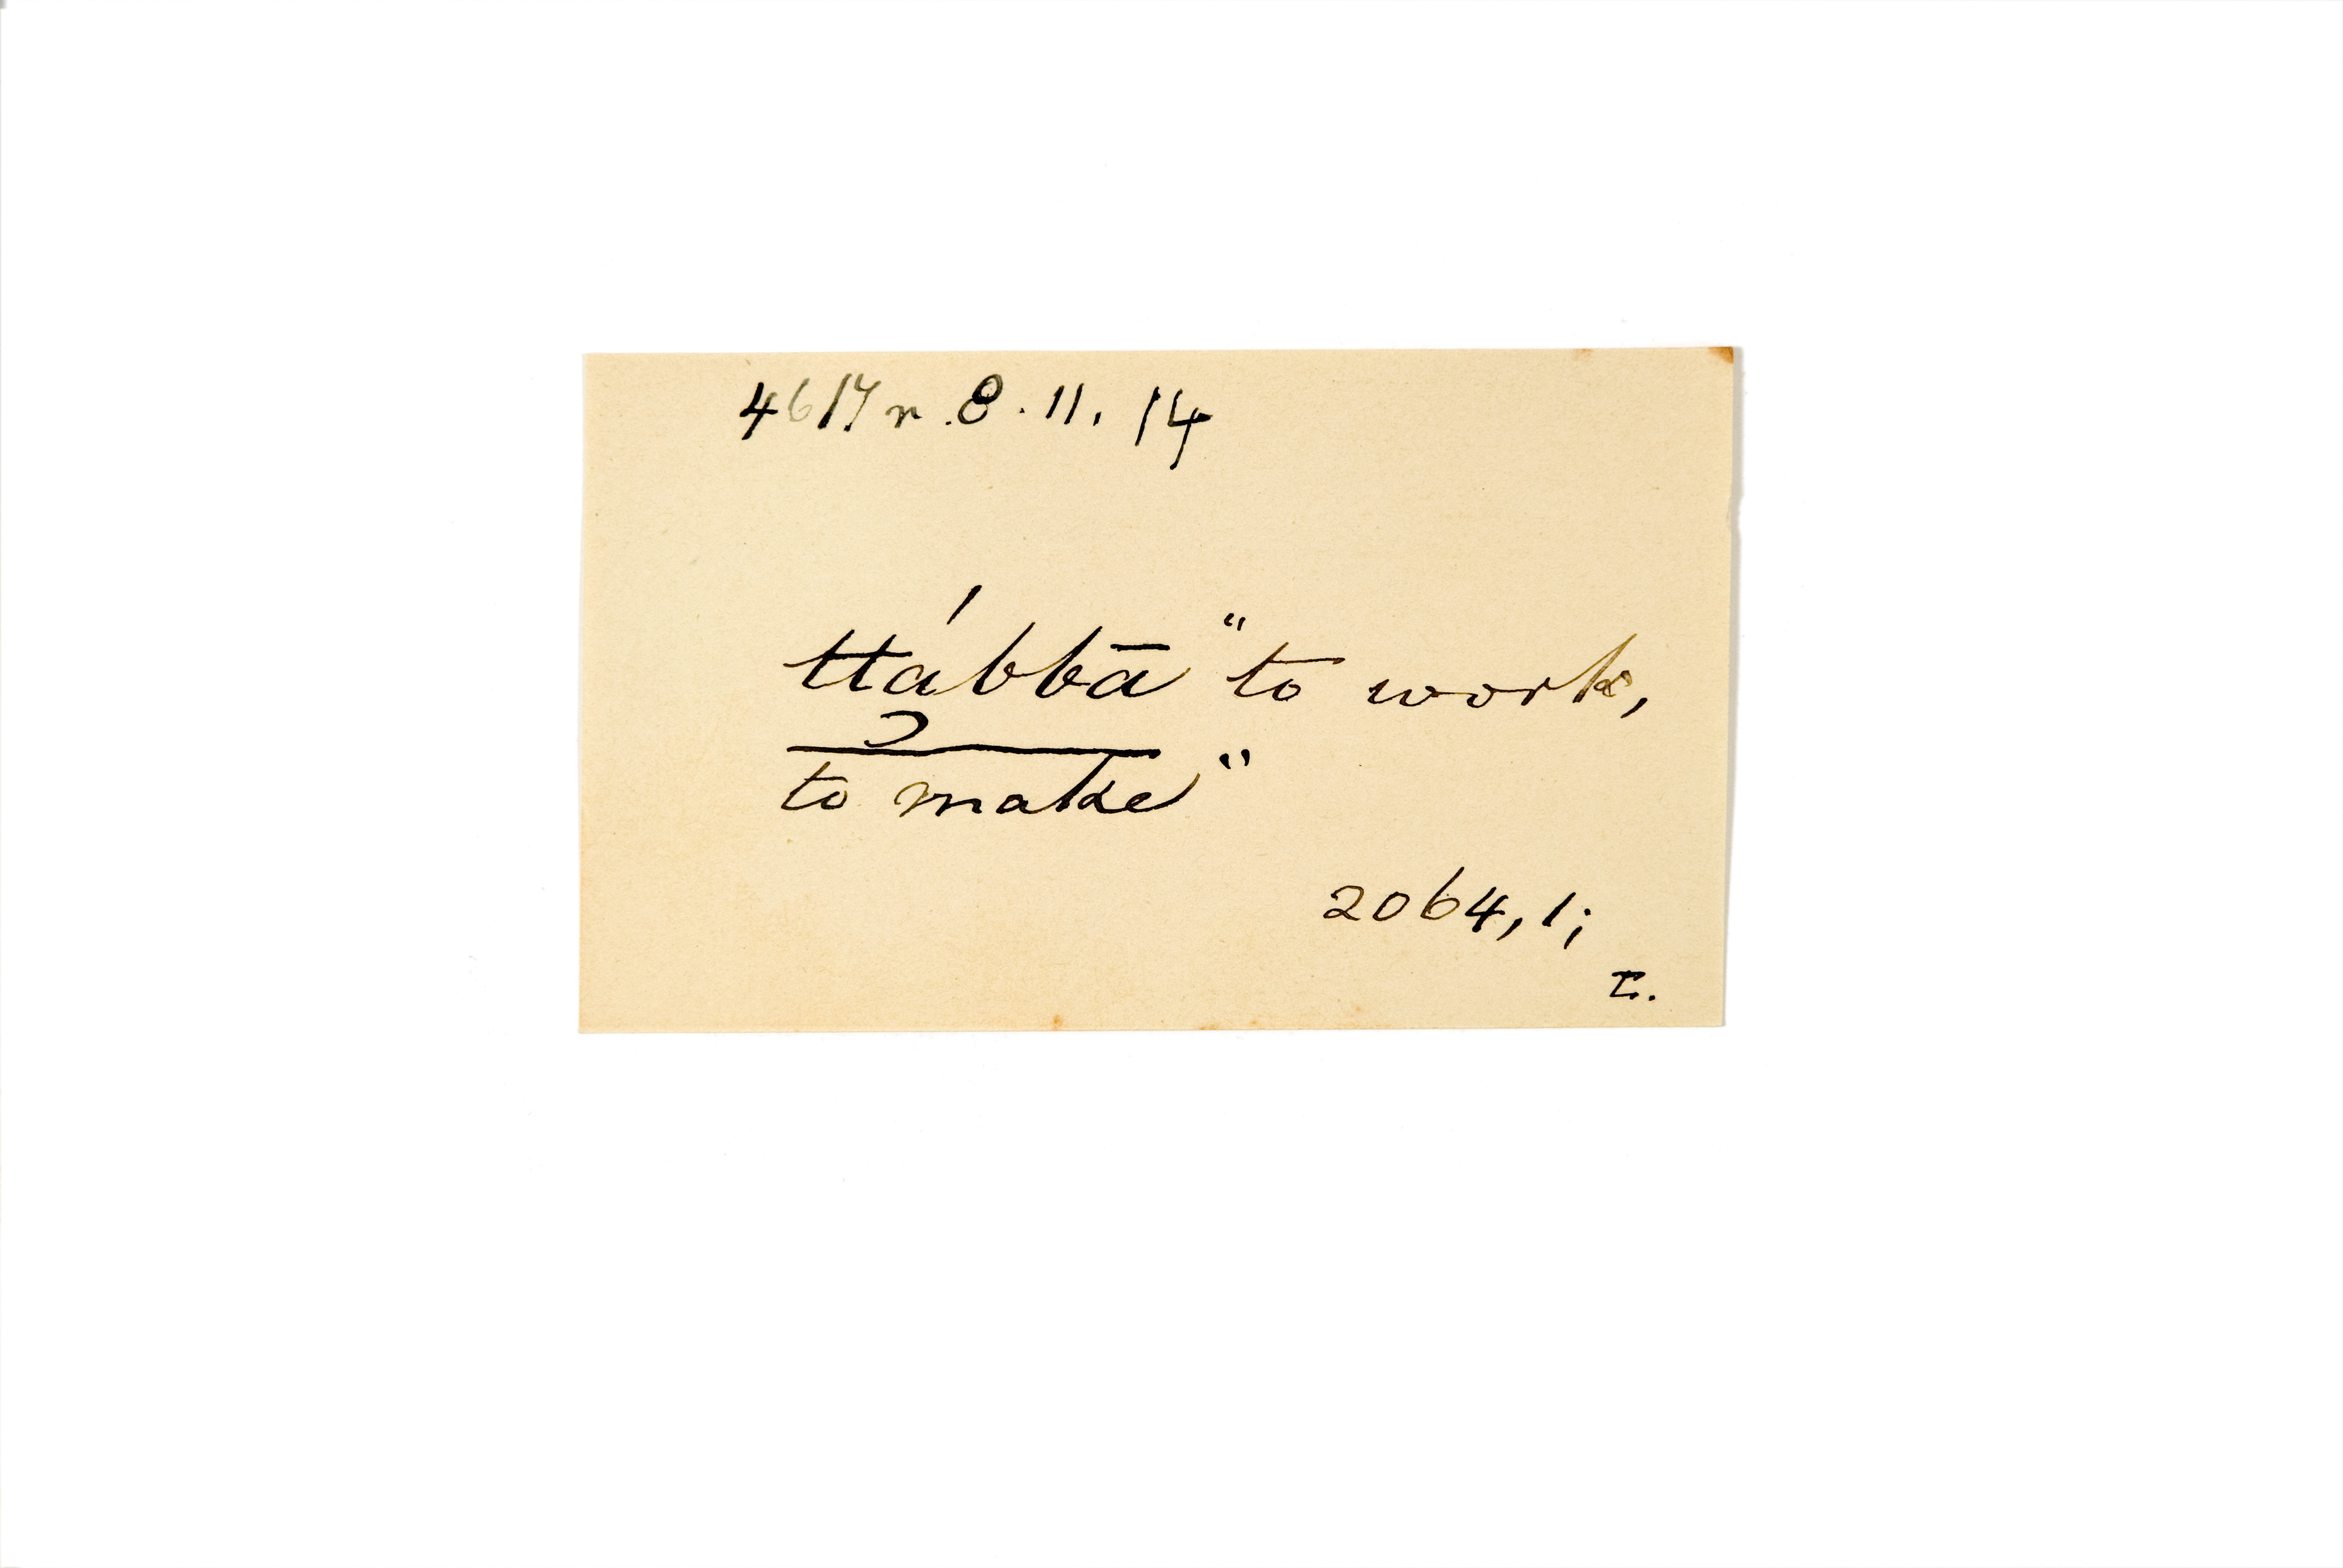 4617 r. 8. 11. 14
ttábbā "to work,
to make"
2064, 1;